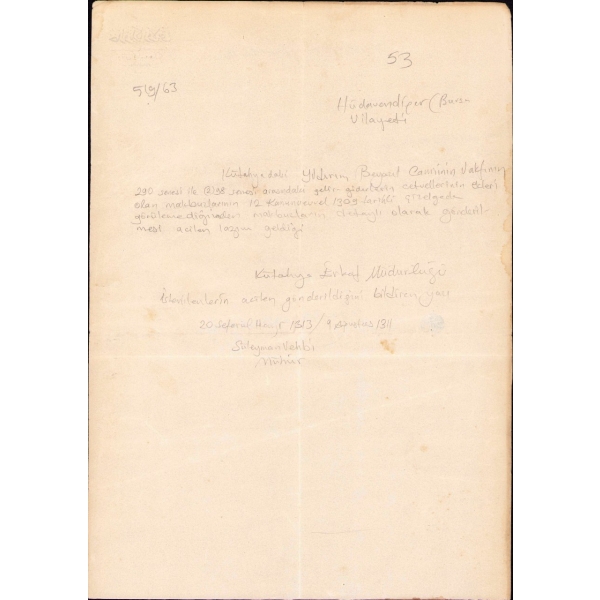 53
519/63
Hüdavendigar (Bursa
Vilayeti
Kütahyadaki Yıldırım Bayezıt Camiinin Vakfının
290 senesi ile 98 senesi arasındaki gelir giderlerin cetvellerinin ekleri
olan makbuzlarının 12 Kanunuevvel 1309 tarihli çizelgede
görülemediğinden makbuzların detaylı olarak gönderil-
mesi acilen lazım geldiği
Kütahya Evkaf Müdürlüğü
İstenilenlerin acilen gönderildiğini bildiren yazı
20 Seferul Hayr 1313 / 9 Agustos 1311
Süleyman Vehbi
Mühür